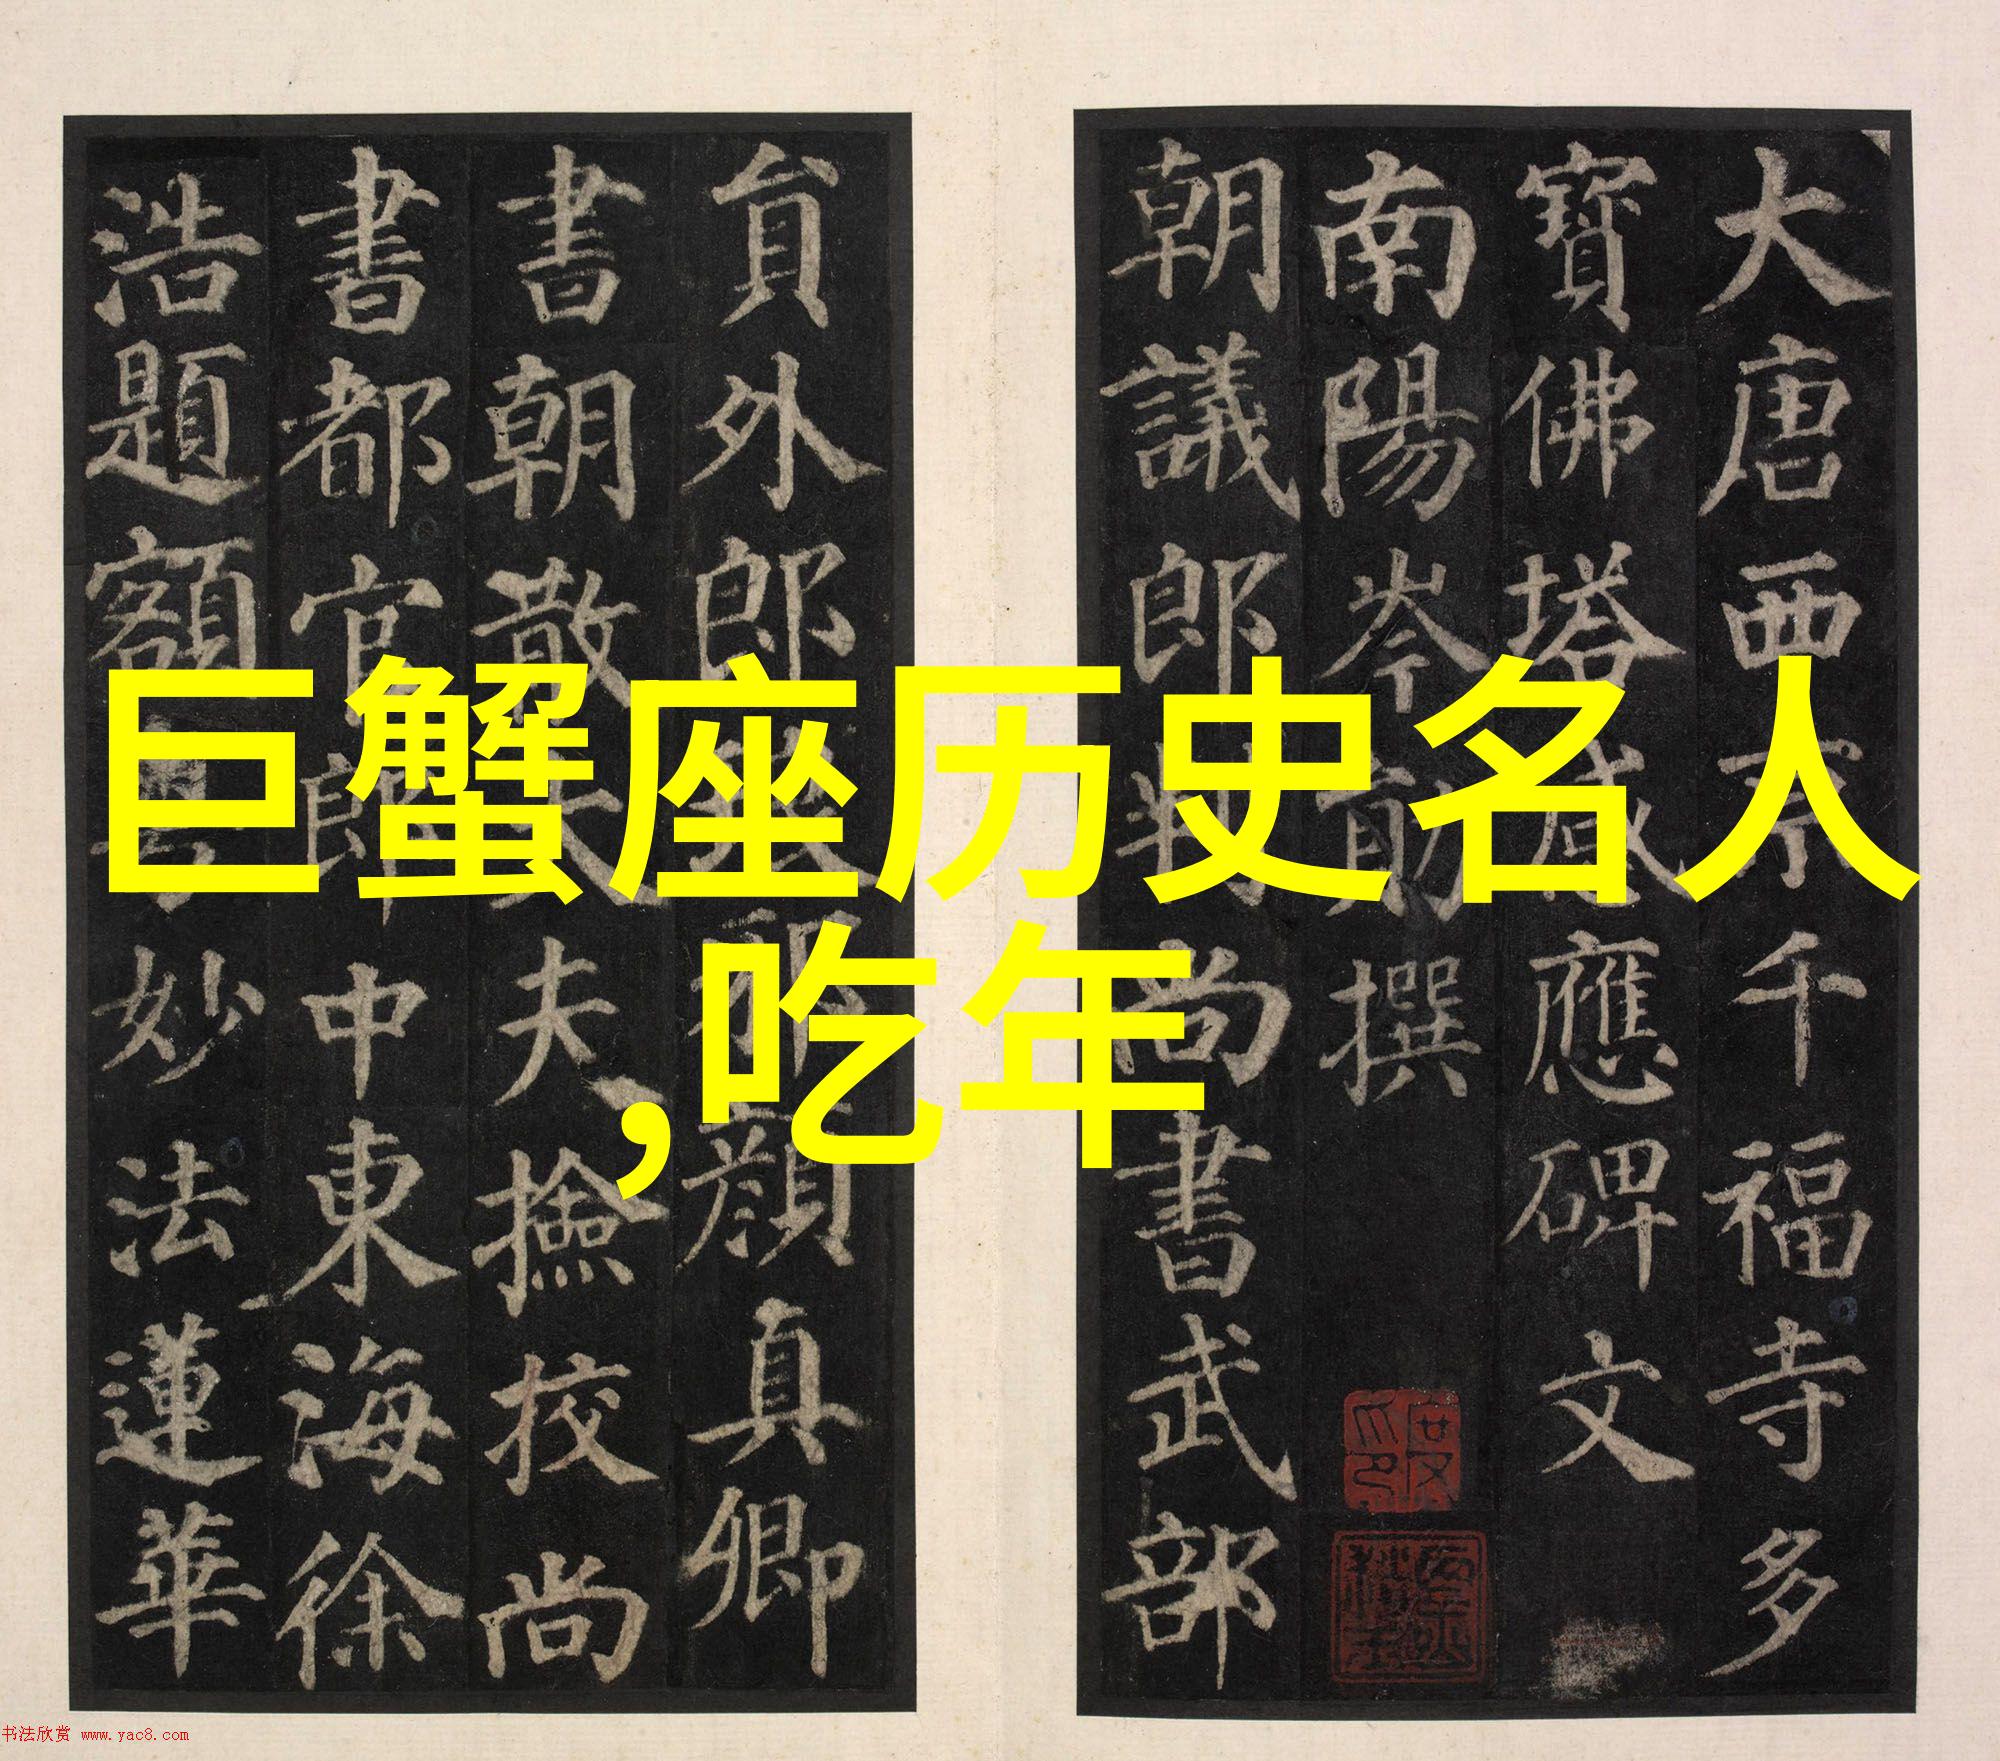 大唐西京千福寺多
寶佛塔感應碑文
南陽岑勛撰
朝議郎判尚書武部
貟外郎琅邪顔真卿
書朝散大夫撿校尚
書都官郎中東海徐
浩題額
妙法蓮華
巨蟹座历史名人
,吃年
书法欣赏 www.yac8.com